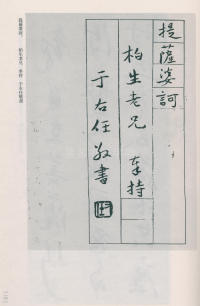 提薩婆訶
柏生老兄 奉持
于右任敬書
提薩婆訶。 柏生老兄 奉持 于右任敬書